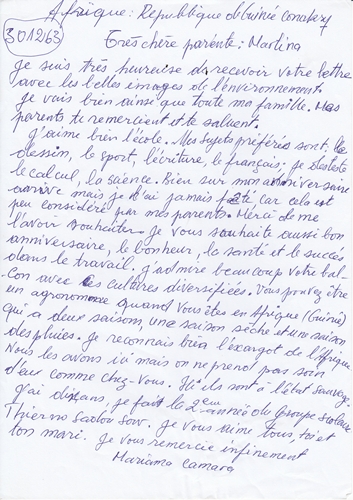 Afrique: République de Guinée Conakry
301263
Très chère parente; Martina
je suis très heureuse de recevoir votre lettre
avec les belles images de l'environnement.
je vais bien ainsi que toute ma famille. Mes
parents te remercient et te saluent.
J'aime bien l'école. Mes sujets préférés sont: le
dessin, le sport, l'écriture, le français; je déteste
le calcul, la science. Bien sur mon anniversaire
arrive mais je n'ai jamais fêté car cela est
peu considéré par mes parents. Merci de me
l'avoir souhaiter. Je vous souhaite aussi bon
anniversaire, le bonheur, la santé et le succès
dans le travail. j'admire beaucoup votre bal-
con avec ces cultures diversifiées. Vous pouvez être
un agronome quand vous êtes en Afrique (Guinée)
qui a deux saison, une saison sèche et une saison
des pluies. Je reconnais bien l'escargot de l'Afrique
Nous les avons ici mais on ne prend pas soin
d'eux comme chez-vous. Ils sont à l'état sauvage
j'ai dix ans, je fait la 2ème année du Groupe scolaire
Thierno Sadou Sow. je vous aime tous, toi et
ton mari. je vous remercie infinement
Mariama Camara